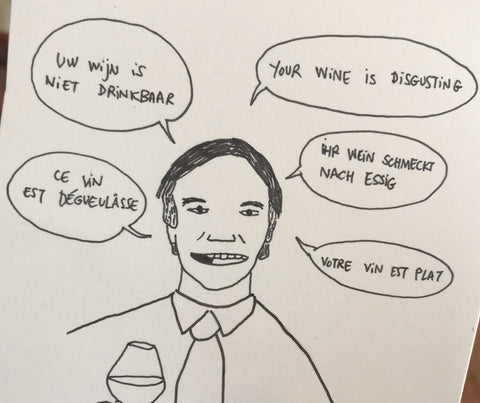 UW WIJN IS
NIET DRINKBAAR
YOUR WINE IS DISGUSTING
CE VIN
EST DÉGUEULÀSSE
IHR WEIN SCHMECKT
NACH ESSIG
VOTRE VIN EST PLAT